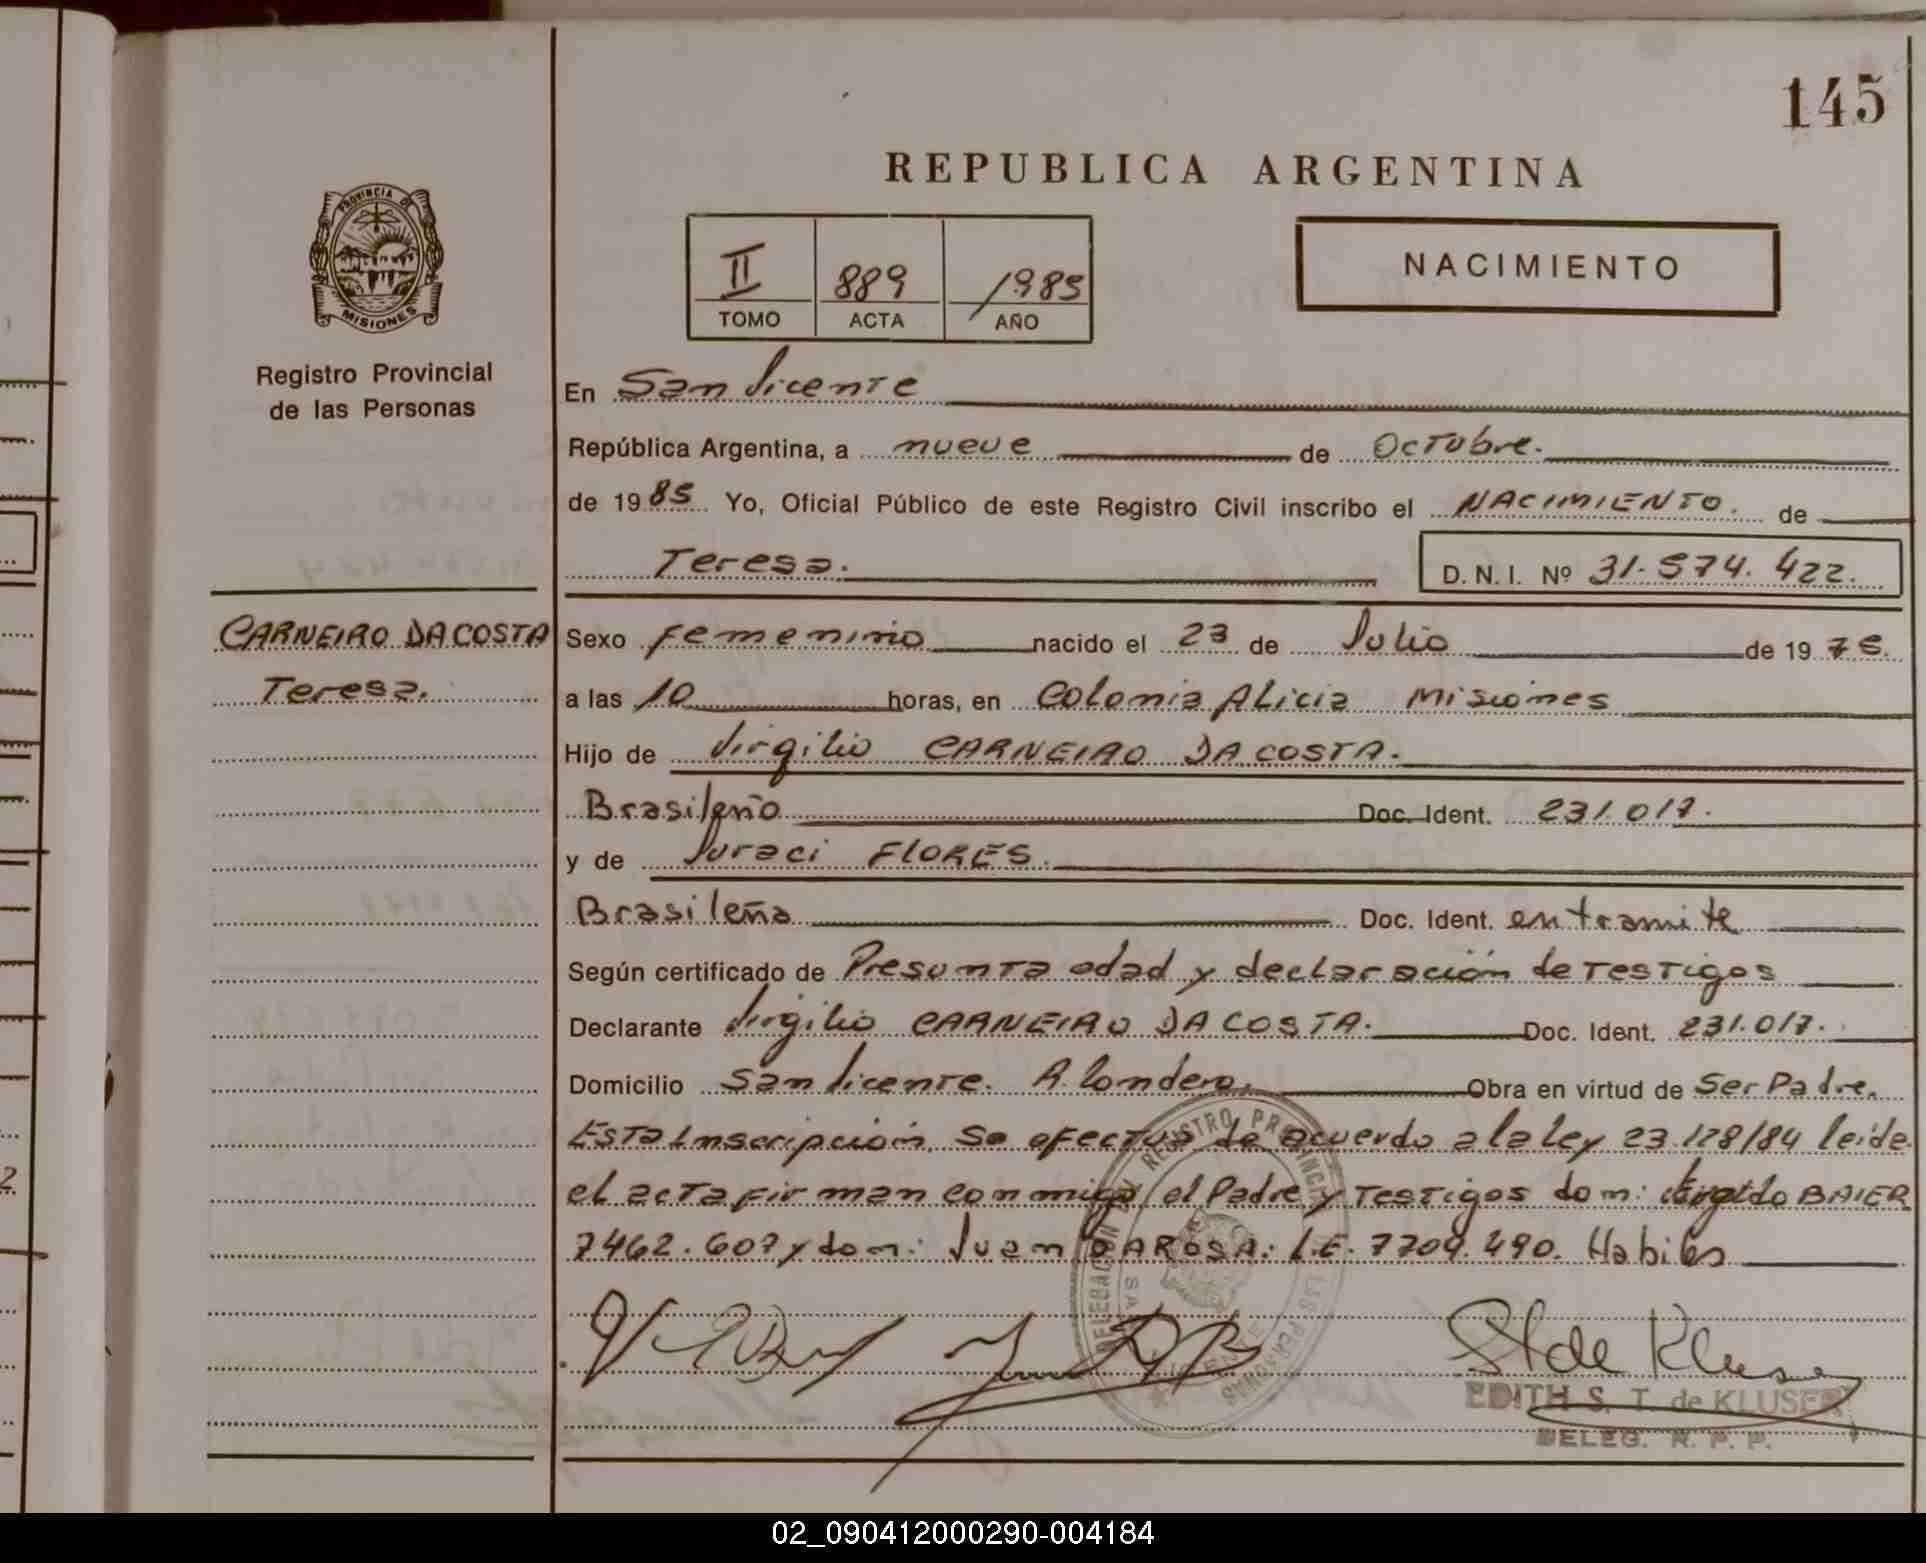 145
REPUBLICA ARGENTINA
II 889 1985
TOMO ACTA AÑO
NACIMIENTO
PROVINCIA DE
MISIONES
Registro Provincial
de las Personas
En San Vicente
República Argentina, a nueve de Octubre.
de 1985 Yo, Oficial Público de este Registro Civil inscribo el NACIMIENTO. de
Teresa. D. N. I. Nº 31.574.422.
CARNEIRO DA COSTA
Teresa.
Sexo femenino nacido el 23 de Julio de 1975.
a las 10 horas, en Colonia Alicia Misiones
Hijo de Virgilio CARNEIRO DA COSTA.
Brasileño Doc. Ident. 231.017.
y de Juraci FLORES.
Brasileña Doc. Ident. en tramite
Según certificado de Presunta edad y declaración de Testigos
Declarante Virgilio CARNEIRO DA COSTA. Doc. Ident. 231.017.
Domicilio San Vicente. A. Londero, Obra en virtud de Ser Padre.
Esta Inscripción, se efectua de acuerdo a la Ley 23.128/84 leida
el acta firman conmigo el Padre y Testigos don: BAIER
7462.607 y don: Juan DAROSA: L.E. 7709.490. Habiles
DELEGACION REGISTRO PROVINCIAL DE LAS PERSONAS
SAN VICENTE
St de Kluser
EDITH S. T. de KLUSER
DELEG. R. P. P.
02_090412000290-004184